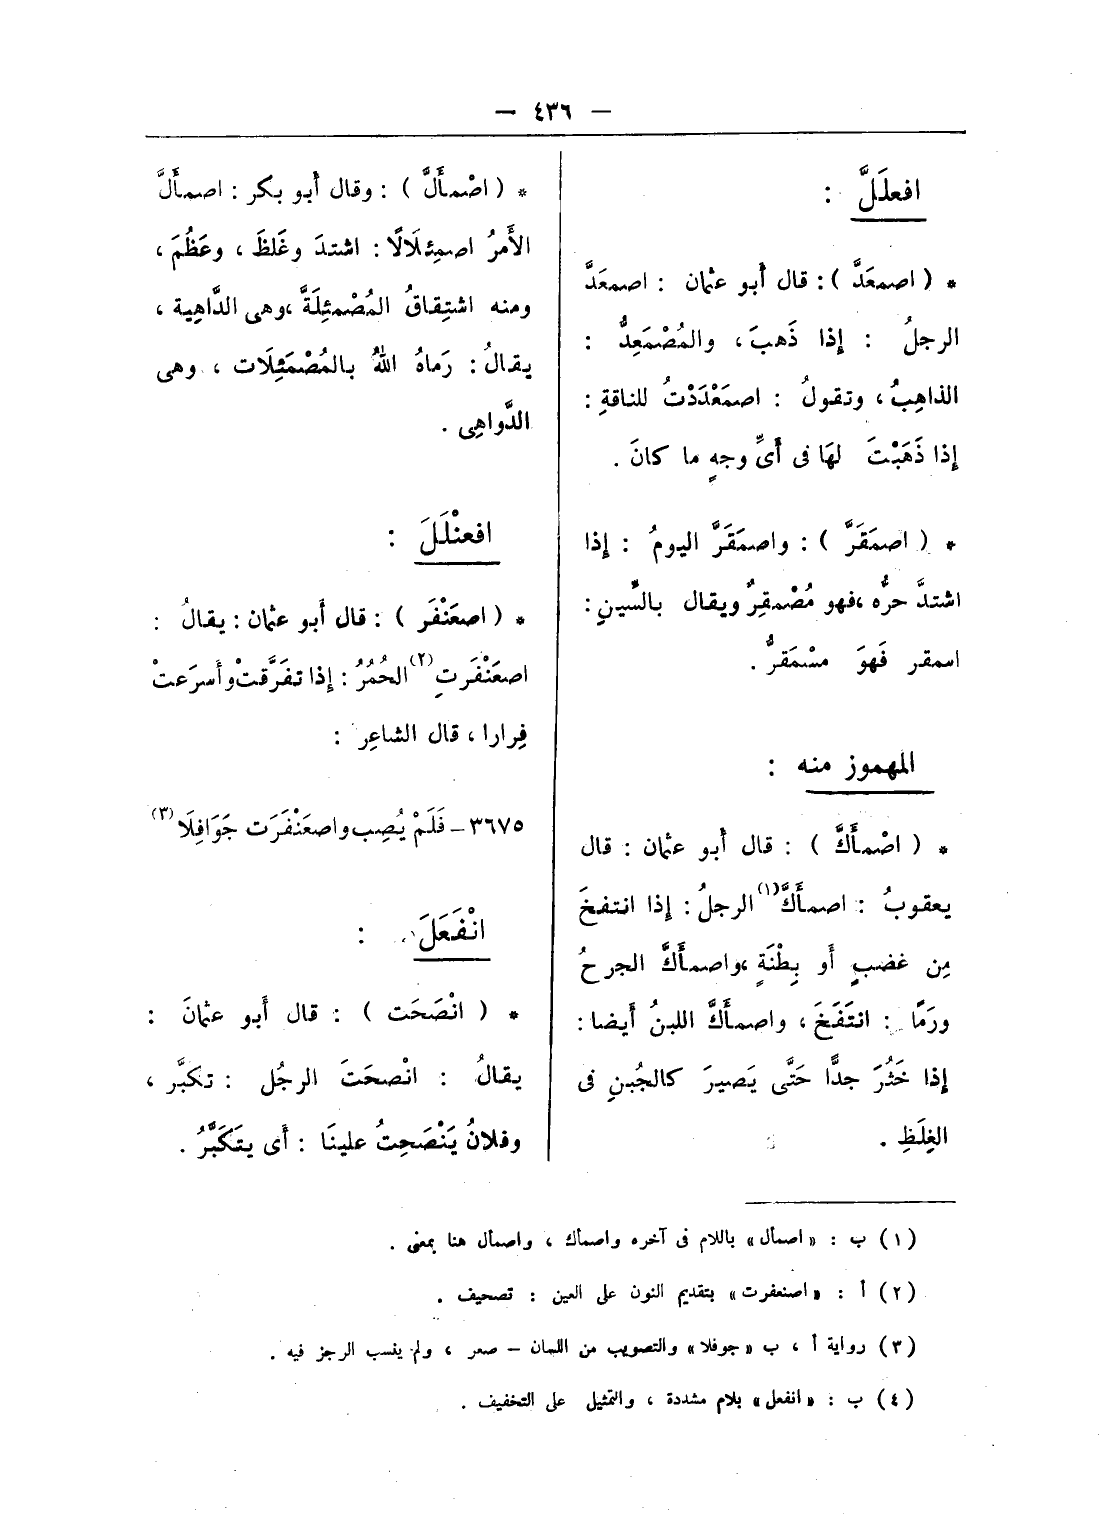 — ٤٣٦ —
افعلَلَّ :
* ( اصمعَدَّ ) : قال أبو عثمان : اصمعَدَّ
الرجلُ : إذا ذَهبَ ، والمُصْمَعِدُّ :
الذاهِبُ ، وتقولُ : اصمَعْدَدْتُ للناقةِ :
إذا ذَهَبْتَ لهَا فى أىِّ وجهٍ ما كانَ .
* ( اصمَقَرَّ ) : واصمَقَرَّ اليومُ : إذا
اشتدَّ حرُّه ،فهو مُصْمقِرٌّ ويقال بالسِّينِ :
اسمقر فَهوَ مسْمَقرٌّ .
المهموز منه :
* ( اصْمأَكَّ ) : قال أبو عثمان : قال
يعقوبُ : اصمأَكَّ(١) الرجلُ : إذا انتفخَ
مِن غضبٍ أو بِطْنَةٍ ،واصمأَكَّ الجرحُ
ورَمًا : انتَفَخَ ، واصمأَكَّ اللبنُ أيضا :
إذا خَثُرَ جدًّا حَتَّى يَصيرَ كالجُبنِ فى
الغِلَظِ .
* ( اصْمأَلَّ ) : وقال أبو بكر : اصمأَلَّ
الأَمرُ اصمِئلَالًا : اشتدَ وغَلظَ ، وعَظُمَ ،
ومنه اشتِقاقُ المُصْمئِلَةَّ ،وهى الدَّاهِية ،
يقالُ : رَماهُ اللهُ بالمُصْمَئِلَات ، وهى
الدَّواهِى .
افعنْلَلَ :
* ( اصعَنْفَر ) : قال أبو عثمان : يقالُ :
اصعَنْفَرتِ(٢) الحُمُرُ : إذا تفَرَّقتْ وأسرَعتْ
فِرارا ، قال الشاعِر :
٣٦٧٥ – فَلَمْ يُصِب واصعَنْفَرَت جَوَافِلَا(٣)
انْفَعَلَ :
* ( انْصَحَت ) : قال أبو عثمانَ :
يقالُ : انْصحَتَ الرجُل : تكبَّر ،
وفلانٌ يَنْصَحِتُ علينَا : أى يتَكَبَّرُ .
(١) ب : « اصمأل » باللام فى آخره واصمأك ، واصمأل هنا بمعنى .
(٢) أ : « اصنعفرت » بتقديم النون على العين : تصحيف .
(٣) رواية أ ، ب « جوفلا » والتصويب من اللسان – صعر ، ولم ينسب الرجز فيه .
(٤) ب : « انفعل » بلام مشددة ، والتمثيل على التخفيف .